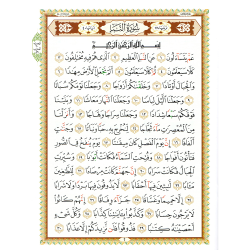 سُورَةُ النَّبَإِ
بِسْمِ اللَّهِ الرَّحْمَٰنِ الرَّحِيمِ
عَمَّ يَتَسَاءَلُونَ ١ عَنِ النَّبَإِ الْعَظِيمِ ٢ الَّذِي هُمْ فِيهِ مُخْتَلِفُونَ ٣
كَلَّا سَيَعْلَمُونَ ٤ ثُمَّ كَلَّا سَيَعْلَمُونَ ٥ أَلَمْ نَجْعَلِ الْأَرْضَ مِهَادًا ٦
وَالْجِبَالَ أَوْتَادًا ٧ وَخَلَقْنَاكُمْ أَزْوَاجًا ٨ وَجَعَلْنَا نَوْمَكُمْ سُبَاتًا ٩
وَجَعَلْنَا اللَّيْلَ لِبَاسًا ١٠ وَجَعَلْنَا النَّهَارَ مَعَاشًا ١١ وَبَنَيْنَا
فَوْقَكُمْ سَبْعًا شِدَادًا ١٢ وَجَعَلْنَا سِرَاجًا وَهَّاجًا ١٣ وَأَنْزَلْنَا
مِنَ الْمُعْصِرَاتِ مَاءً ثَجَّاجًا ١٤ لِنُخْرِجَ بِهِ حَبًّا وَنَبَاتًا ١٥ وَجَنَّاتٍ
أَلْفَافًا ١٦ إِنَّ يَوْمَ الْفَصْلِ كَانَ مِيقَاتًا ١٧ يَوْمَ يُنْفَخُ فِي الصُّورِ
فَتَأْتُونَ أَفْوَاجًا ١٨ وَفُتِحَتِ السَّمَاءُ فَكَانَتْ أَبْوَابًا ١٩ وَسُيِّرَتِ
الْجِبَالُ فَكَانَتْ سَرَابًا ٢٠ إِنَّ جَهَنَّمَ كَانَتْ مِرْصَادًا ٢١ لِلطَّاغِينَ
مَآبًا ٢٢ لَابِثِينَ فِيهَا أَحْقَابًا ٢٣ لَا يَذُوقُونَ فِيهَا بَرْدًا وَلَا شَرَابًا
٢٤ إِلَّا حَمِيمًا وَغَسَّاقًا ٢٥ جَزَاءً وِفَاقًا ٢٦ إِنَّهُمْ كَانُوا
لَا يَرْجُونَ حِسَابًا ٢٧ وَكَذَّبُوا بِآيَاتِنَا كِذَّابًا ٢٨ وَكُلَّ شَيْءٍ
أَحْصَيْنَاهُ كِتَابًا ٢٩ فَذُوقُوا فَلَنْ نَزِيدَكُمْ إِلَّا عَذَابًا ٣٠